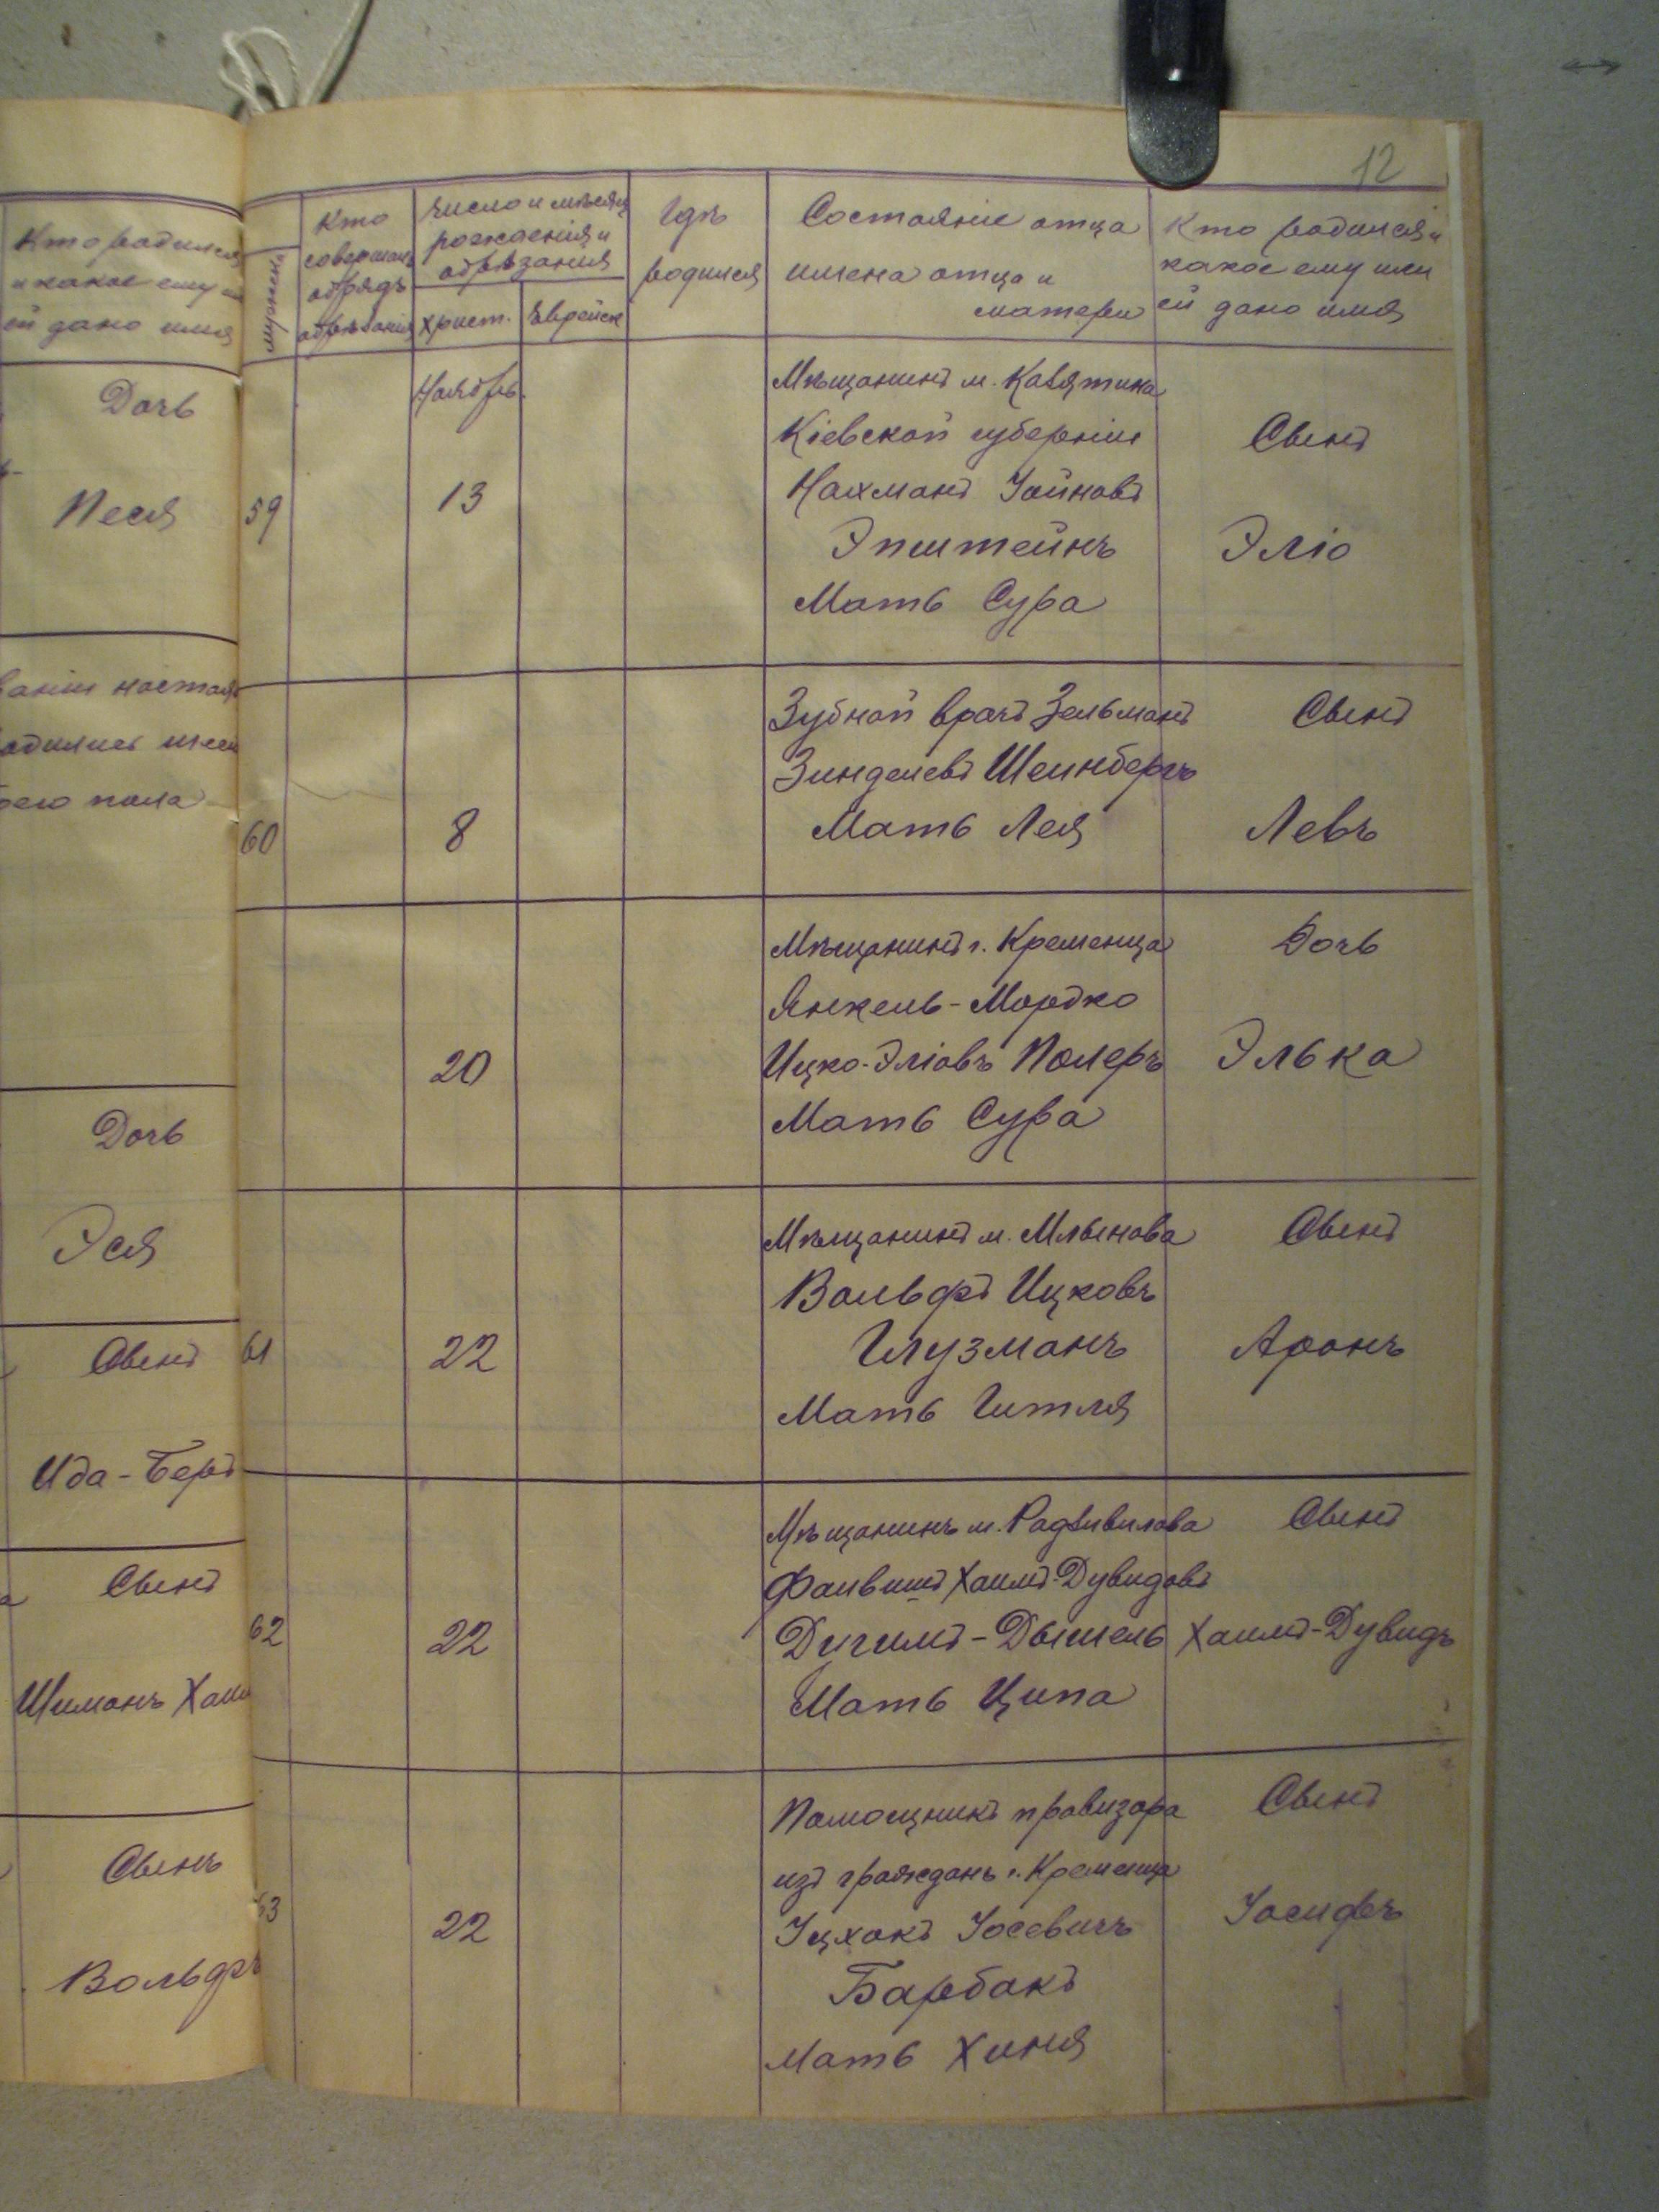 Кто родился
и какое ему и
ей дано имя
Дочь
Песя
родились
Дочь
Эся
Сынъ
Ида-Беръ
Сынъ
Шиманъ Хаи
Сынъ
Вольфъ
12
мужеск.
Кто
совершалъ
обрядъ
обрѣзанія
Число и мѣсяц
рожденія и
обрѣзанія
Христ.
Еврейск
Гдѣ
родился
Состояніе отца
имена отца и
матери
Кто родился и
какое ему или
ей дано имя
59
Ноябрь
13
Мѣщанинъ м.
Кіевской губерніи
Нахманъ Іойновъ
Эпштейнъ
Мать Сура
Сынъ
Эліо
60
8
Зубной врачъ Зельманъ
Зинделевъ Шеинбергъ
Мать Лея
Сынъ
Левъ
20
Мѣщанинъ г. Кременца
Янкель-Мордко
Ицко-Эліовъ Полеръ
Мать Сура
Дочь
Элька
61
22
Мѣщанинъ м. Млынова
Вольфъ Ицковъ
Глузманъ
Мать Гитля
Сынъ
Аронъ
62
22
Мѣщанинъ м. Радзивилова
Фаивишъ Хаимъ-Дувидовъ
-Дышель
Мать Ципа
Сынъ
Хаимъ-Дувидъ
63
22
Помощникъ провизора
изъ гражданъ г. Кременца
Іцхокъ Іосевичъ
Барбакъ
Мать Хиня
Сынъ
Іосифъ